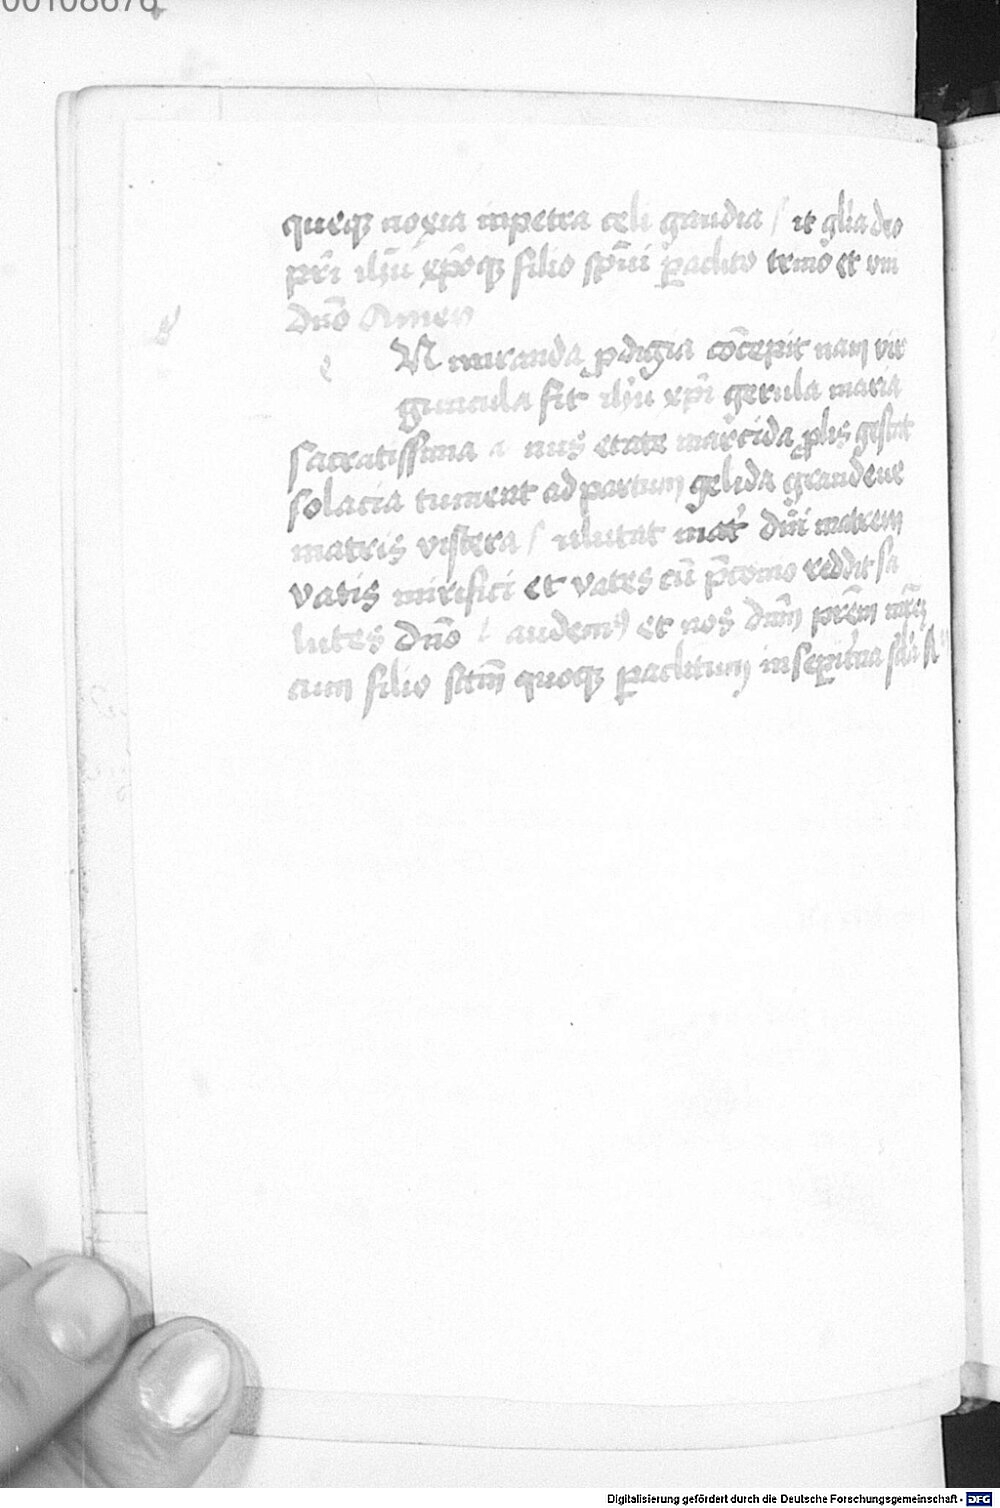 00108676
queqꝫ noxia inpetra celi gaudia / it gl'ia deo
pr̄i ih̄u xp̄oqꝫ filio sp̄ui ꝑaclito trino et vni
dn̄o Amen
e N miranda ꝓdigia cōcepit nam vir
guncula fit ih̄u xp̄i gerula maria
sacratissima a nus etate marcida ꝓlis gestat
solacia tument ad partum gelida grandeue
matris viscera / salutat mat' dn̄i matrem
vatis mirifici et vates cū p̄conio reddit sa
lutes dn̄o / laudemꝰ et nos dn̄m prēm
cum filio sctm̄ quoqꝫ paclitum in sepit'na
Digitalisierung gefördert durch die Deutsche Forschungsgemeinschaft - DFG